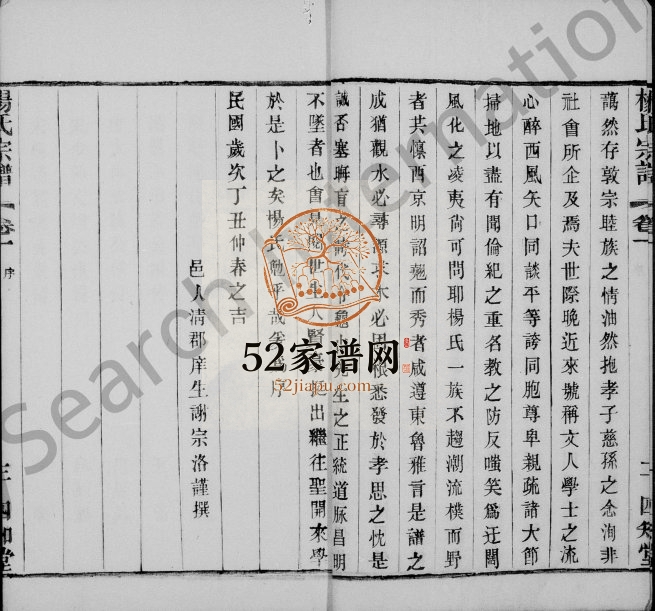 藹然存敦宗睦族之情油然抱孝子慈孫之念洵非
社會所企及焉夫世際晚近來號稱文人學士之流
心醉西風矢口同談平等謗同胞尊卑親疏諸大節
掃地以盡有聞倫紀之重名教之防反嗤笑為迂闊
風化之凌夷尚可問耶楊氏一族不趨潮流樸而野
者共懍西京明詔
而秀者咸遵東魯雅言是譜之
成猶觀水必尋源
必因
悉發於孝思之忱是
誠否塞晦盲之
代
生之正統道脉昌明
不墜者也
出繼往聖開來學
於是卜之矣楊氏勉乎哉
序
民國歲次丁丑仲春之吉
邑人清郡庠生謝宗洛謹撰
楊氏宗譜
卷一
序
二
四知堂
楊氏宗譜
卷一
序
三
四知堂
52家谱网
52jiapu.com
Search Internation